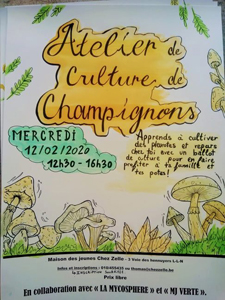 Atelier de
Culture de
Champignons
MERCREDI
12/02/2020
12h30 - 16h30
Apprends à cultiver
des plantes et repars
chez toi avec un ballot
de culture pour en faire
profiter à ta famille et
tes potes!
Maison des jeunes Chez Zelle - 3 Voie des hennuyers L-L-N
Infos et inscriptions :
Prix libre
En collaboration avec « LA MYCOSPHERE » et « MJ VERTE ».